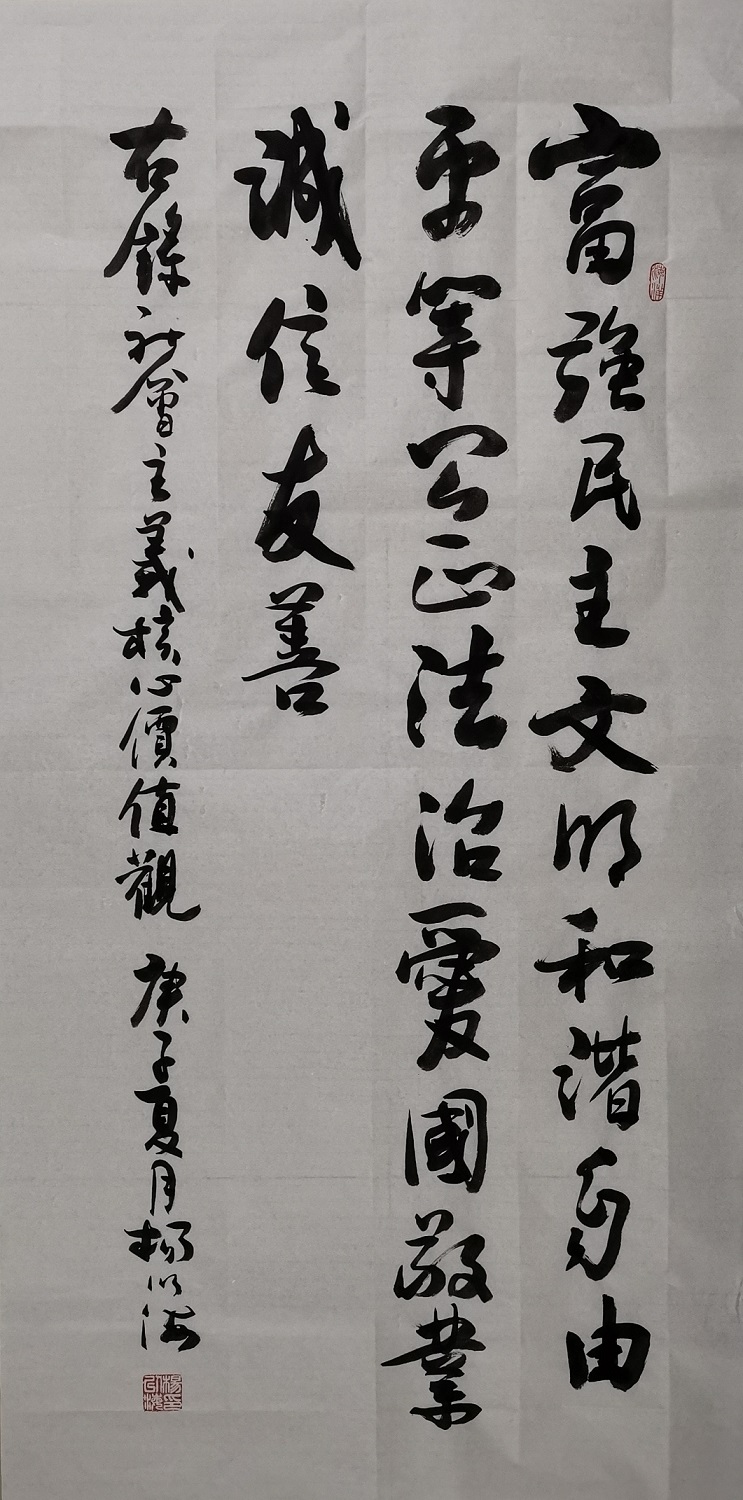 富强民主文明和諧自由
平等公正法治愛國敬業
誠信友善
右錄社會主義核心價值觀 庚子夏月楊以海